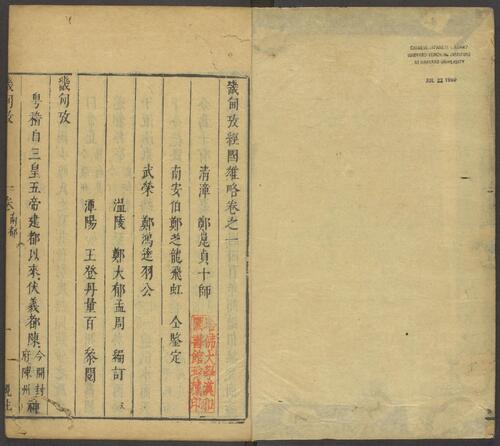 CHINESE-JAPANESE LIBRARY
HARVARD-YENCHING INSTITUTE
AT HARVARD UNIVERSITY
JUL 22 1960
畿甸攷經國雄略卷之一
清漳 鄭崑貞十師
南安伯鄭芝龍飛虹 仝鑒定
武榮 鄭鴻逵羽公
溫陵 鄭大郁孟周 編訂
潭陽 王登丹量百 叅閱
哈佛大學漢和
圖書館珍藏印
畿甸攷
粤稽自三皇五帝建都以來伏羲都陳今開封府陳州
畿甸攷 一卷 南都